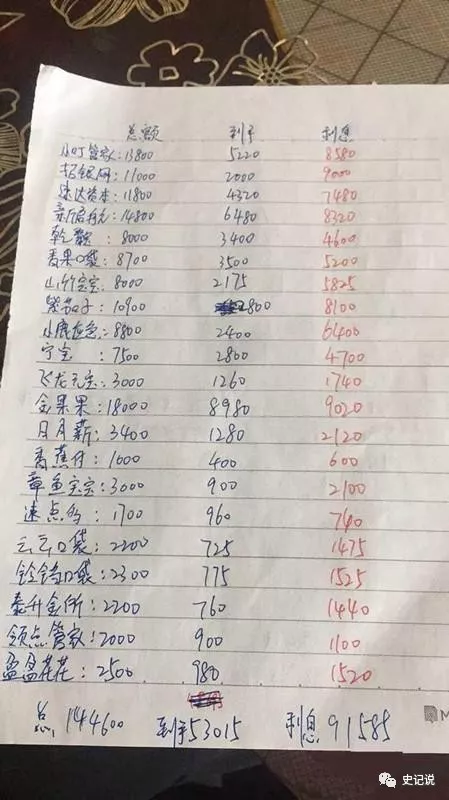 总额 到手 利息
小叮管家:13800 5220 8580
拓银网:11000 2000 9000
速达资本:11800 4320 7480
14800 6480 8320
8000 3400 4600
香果口袋:8700 3500 5200
山竹宝宝:8000 2175 5825
紫茄子:10900 2800 8100
小鹿应急:8800 2400 6400
宁宝:7500 2800 4700
飞龙元宝:3000 1260 1740
金果果:18000 8980 9020
日月薪:3400 1280 2120
香蕉仔:1000 400 600
章鱼宝宝:3000 900 2100
速点多:1700 960 740
云云口袋:2200 725 1475
铃铛口袋:2300 775 1525
泰升金所:2200 760 1440
领点管家:2000 900 1100
盈盈花花:2500 980 1520
总 144600 到手53015 利息91585
M
史记说